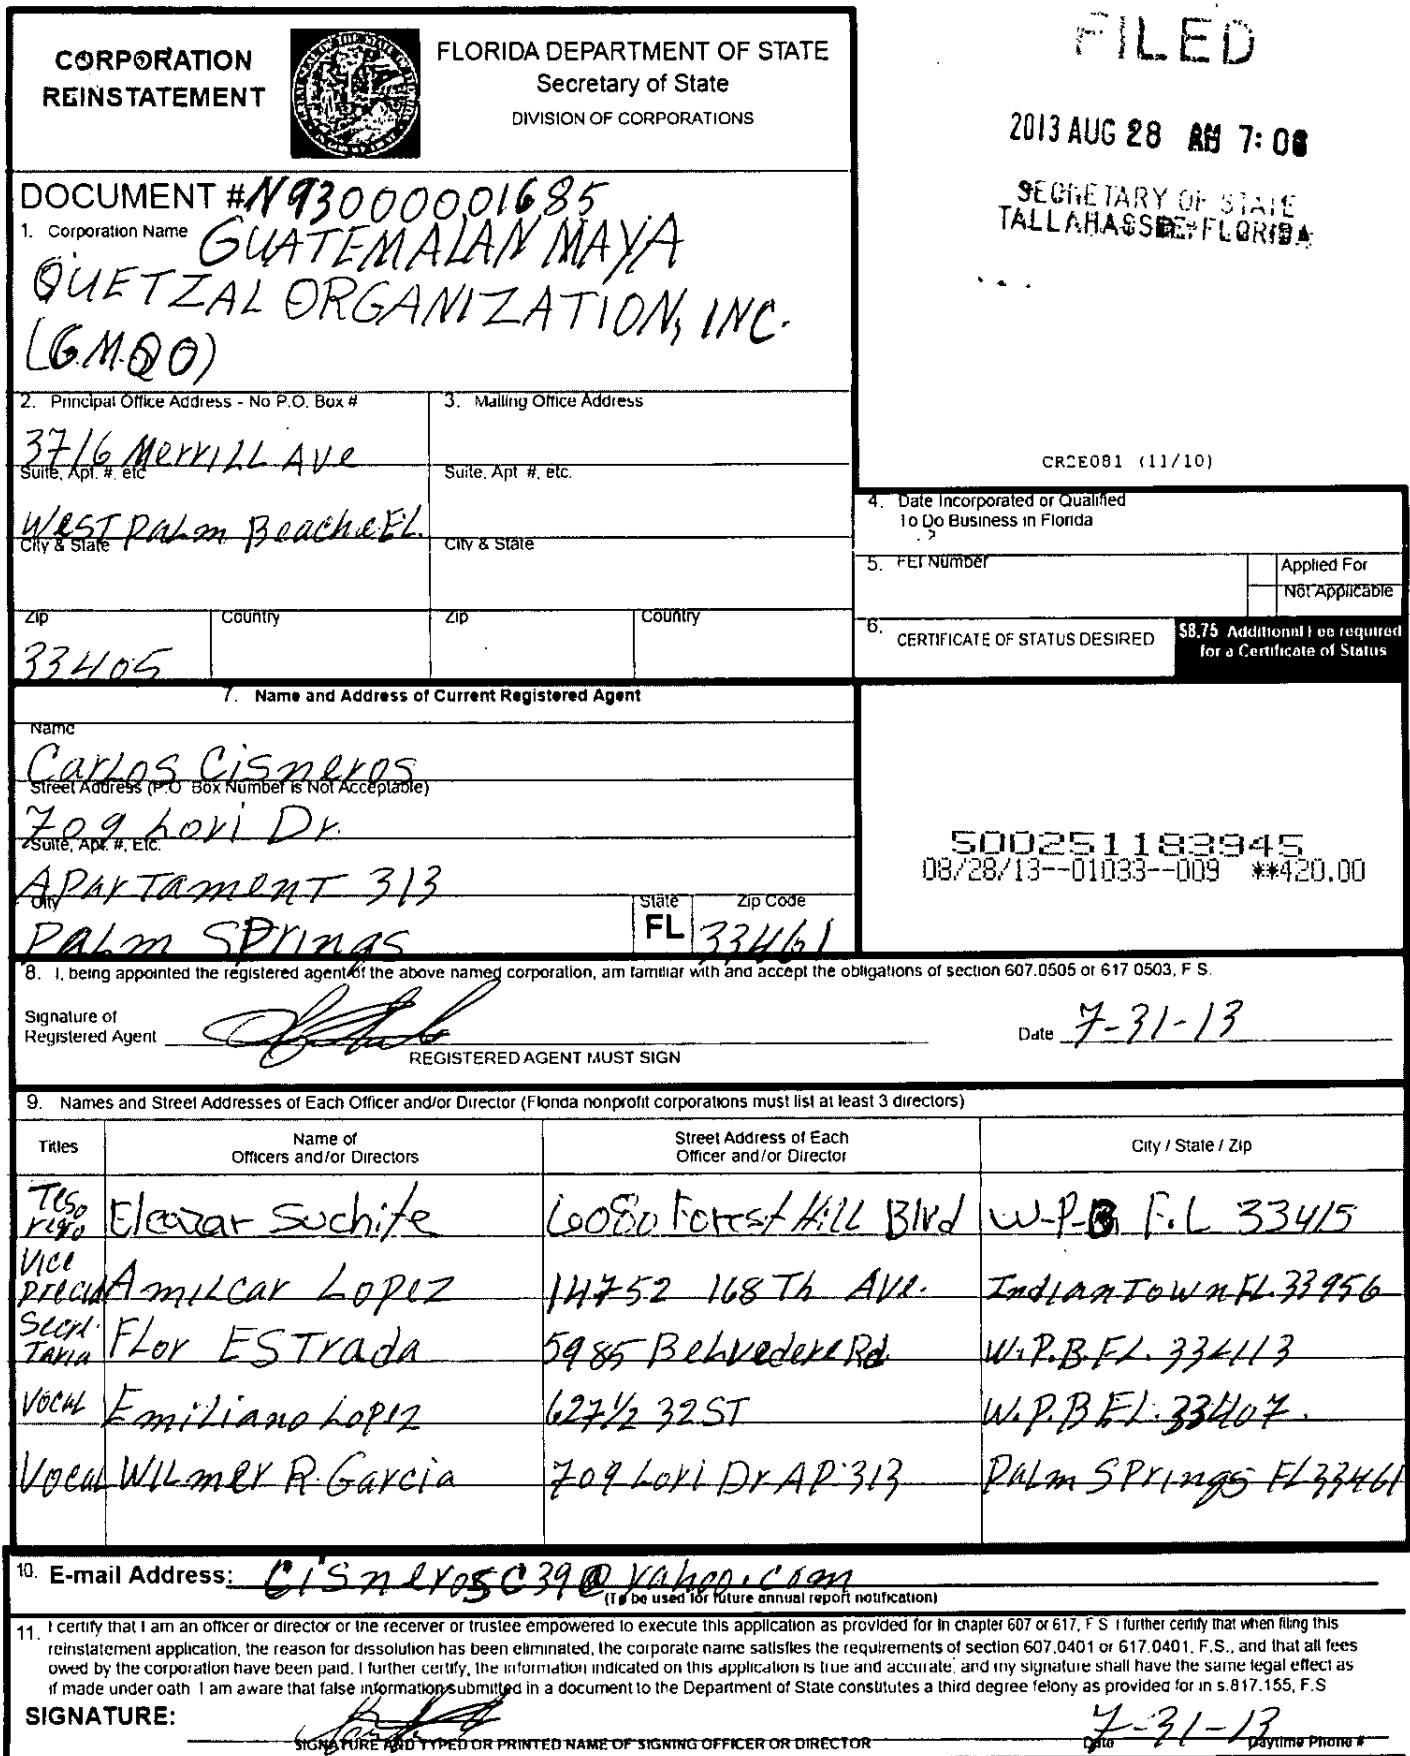 CORPORATION
REINSTATEMENT
FLORIDA DEPARTMENT OF STATE
Secretary of State
DIVISION OF CORPORATIONS
FILED
2013 AUG 28 AM 7:08
SECRETARY OF STATE
TALLAHASSEE, FLORIDA
DOCUMENT # N93000001685
1. Corporation Name GUATEMALAN MAYA
QUETZAL ORGANIZATION, INC.
(G.M.Q.O)
2. Principal Office Address - No P.O. Box #
3. Mailing Office Address
3716 Merrill Ave
Suite, Apt. #, etc
Suite, Apt #, etc.
CR2E081 (11/10)
West Palm Beache FL.
City & State
City & State
4. Date Incorporated or Qualified
To Do Business in Florida
5. FEI Number
Applied For
Not Applicable
Zip
Country
Zip
Country
33405
6. CERTIFICATE OF STATUS DESIRED
$8.75 Additional Fee required
for a Certificate of Status
7. Name and Address of Current Registered Agent
Name
Carlos Cisneros
Street Address (P.O Box Number is Not Acceptable)
709 Lori Dr.
Suite, Apt. #, Etc.
Apartament 313
City
State
Zip Code
Palm Springs
FL
33461
500251183945
08/28/13--01033--009 **420.00
8. I, being appointed the registered agent of the above named corporation, am familiar with and accept the obligations of section 607.0505 or 617 0503, F S.
Signature of
Registered Agent
Date 7-31-13
REGISTERED AGENT MUST SIGN
9. Names and Street Addresses of Each Officer and/or Director (Florida nonprofit corporations must list at least 3 directors)
Titles
Name of
Officers and/or Directors
Street Address of Each
Officer and/or Director
City / State / Zip
Teso
rero Eleazar Suchite 6080 Forest Hill Blvd W-P-B F.L 33415
Vice
Precid Amilcar Lopez 14752 168Th Ave. IndianTown FL. 33956
Secre
Taria Flor ESTrada 5985 Belvedere Rd. W.P.B.FL. 33413
Vocal Emiliano Lopez 627 1/2 32 ST W.P.B FL. 33407.
Vocal Wilmer R. Garcia 709 Lori Dr AP. 313 Palm Springs FL 33461
10. E-mail Address: Cisnerosc39@yahoo.com
(To be used for future annual report notification)
11. I certify that I am an officer or director or the receiver or trustee empowered to execute this application as provided for in chapter 607 or 617, F S I further certify that when filing this
reinstatement application, the reason for dissolution has been eliminated, the corporate name satisfies the requirements of section 607.0401 or 617.0401, F.S., and that all fees
owed by the corporation have been paid. I further certify, the information indicated on this application is true and accurate, and my signature shall have the same legal effect as
if made under oath I am aware that false information submitted in a document to the Department of State constitutes a third degree felony as provided for in s.817.155, F.S
SIGNATURE:
7-31-13
SIGNATURE AND TYPED OR PRINTED NAME OF SIGNING OFFICER OR DIRECTOR
Date
Daytime Phone #